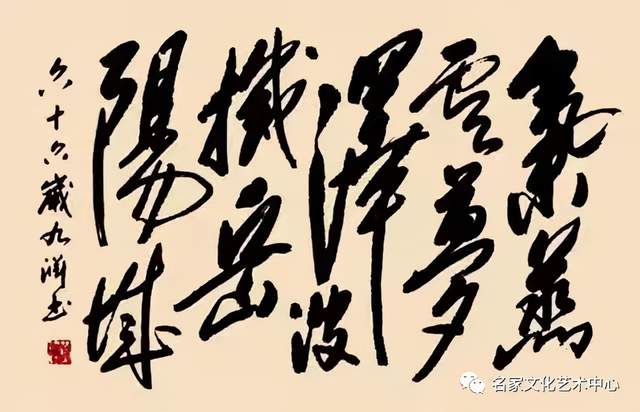 氣蒸
雲夢
澤波
撼岳
陽城
六十六歲九书
名家文化艺术中心